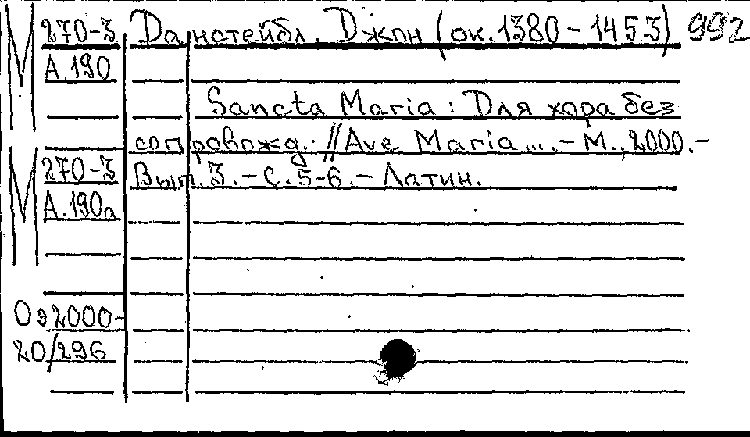 М 270-3 Данстейбл, Джон (ок. 1380-1453) 992
А.190
Sancta Maria : Для хора без
сопровожд. // Ave Maria... - М., 2000. -
М 270-3 Вып. 3. - С. 5-6. - Латин.
А.190а
Оэ2000-
20/296